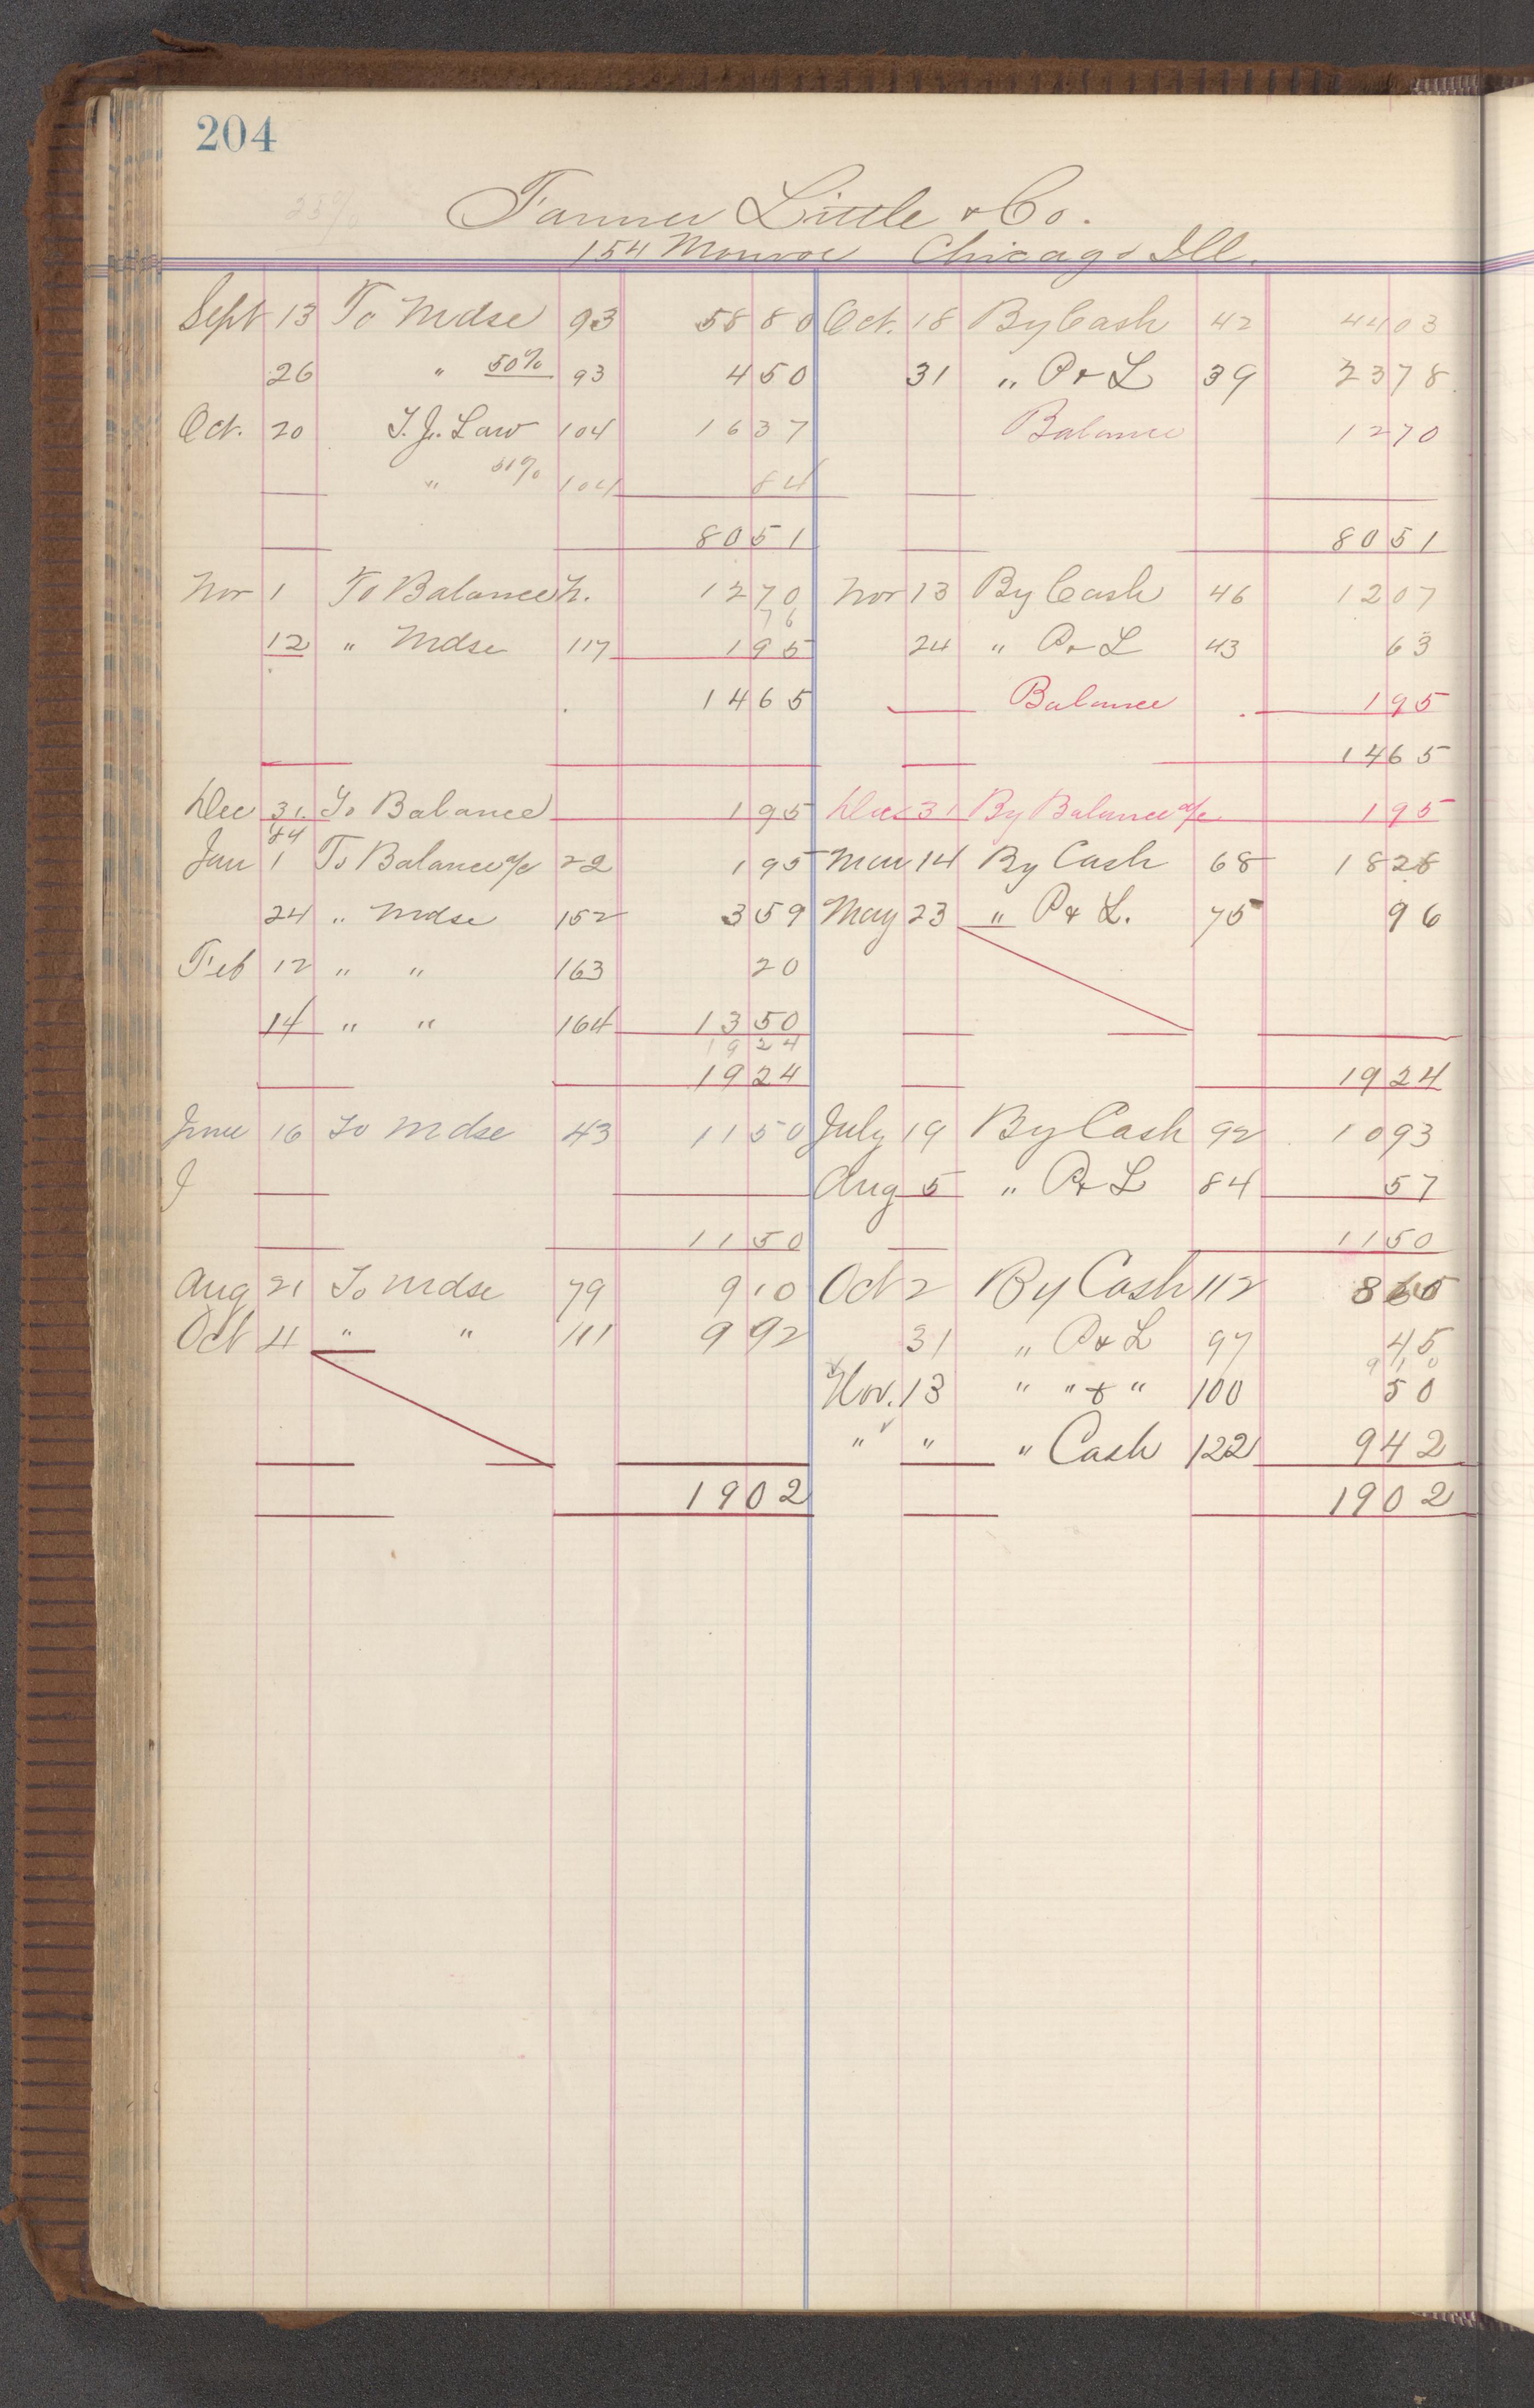 204
Tanner Little & Co.
154 Monroe Chicago Ill.
Sept 13 To Mdse 93 5880 Oct. 18 By Cash 42 4403
26 " 50% 93 450 31 " P & L 39 2378
Oct. 20 T. J. Law 104 1637 Balance 1270
" 50% 104 84
8051 8051
Nov 1 To Balance 1270 Nov 13 By Cash 46 1207
76
12 " Mdse 117 195 24 " P & L 43 63
1465 Balance 195
1465
Dec 31. To Balance 195 Dec 31 By Balance a/c 195
84
Jan 1 To Balance a/c 22 195 Mar 14 By Cash 68 1828
24 " Mdse 152 359 May 23 " P & L. 75 96
Feb 12 " " 163 20
14 " " 164 1350
1924
1924 1924
June 16 To Mdse 43 1150 July 19 By Cash 92 1093
J Aug 5 " P & L 84 57
1150 1150
Aug 21 To Mdse 79 910 Oct 2 By Cash 112 865
Oct 4 " " 111 992 31 " P & L 97 45
910
Nov. 13 " " & " 100 50
" " " Cash 122 942
1902 1902